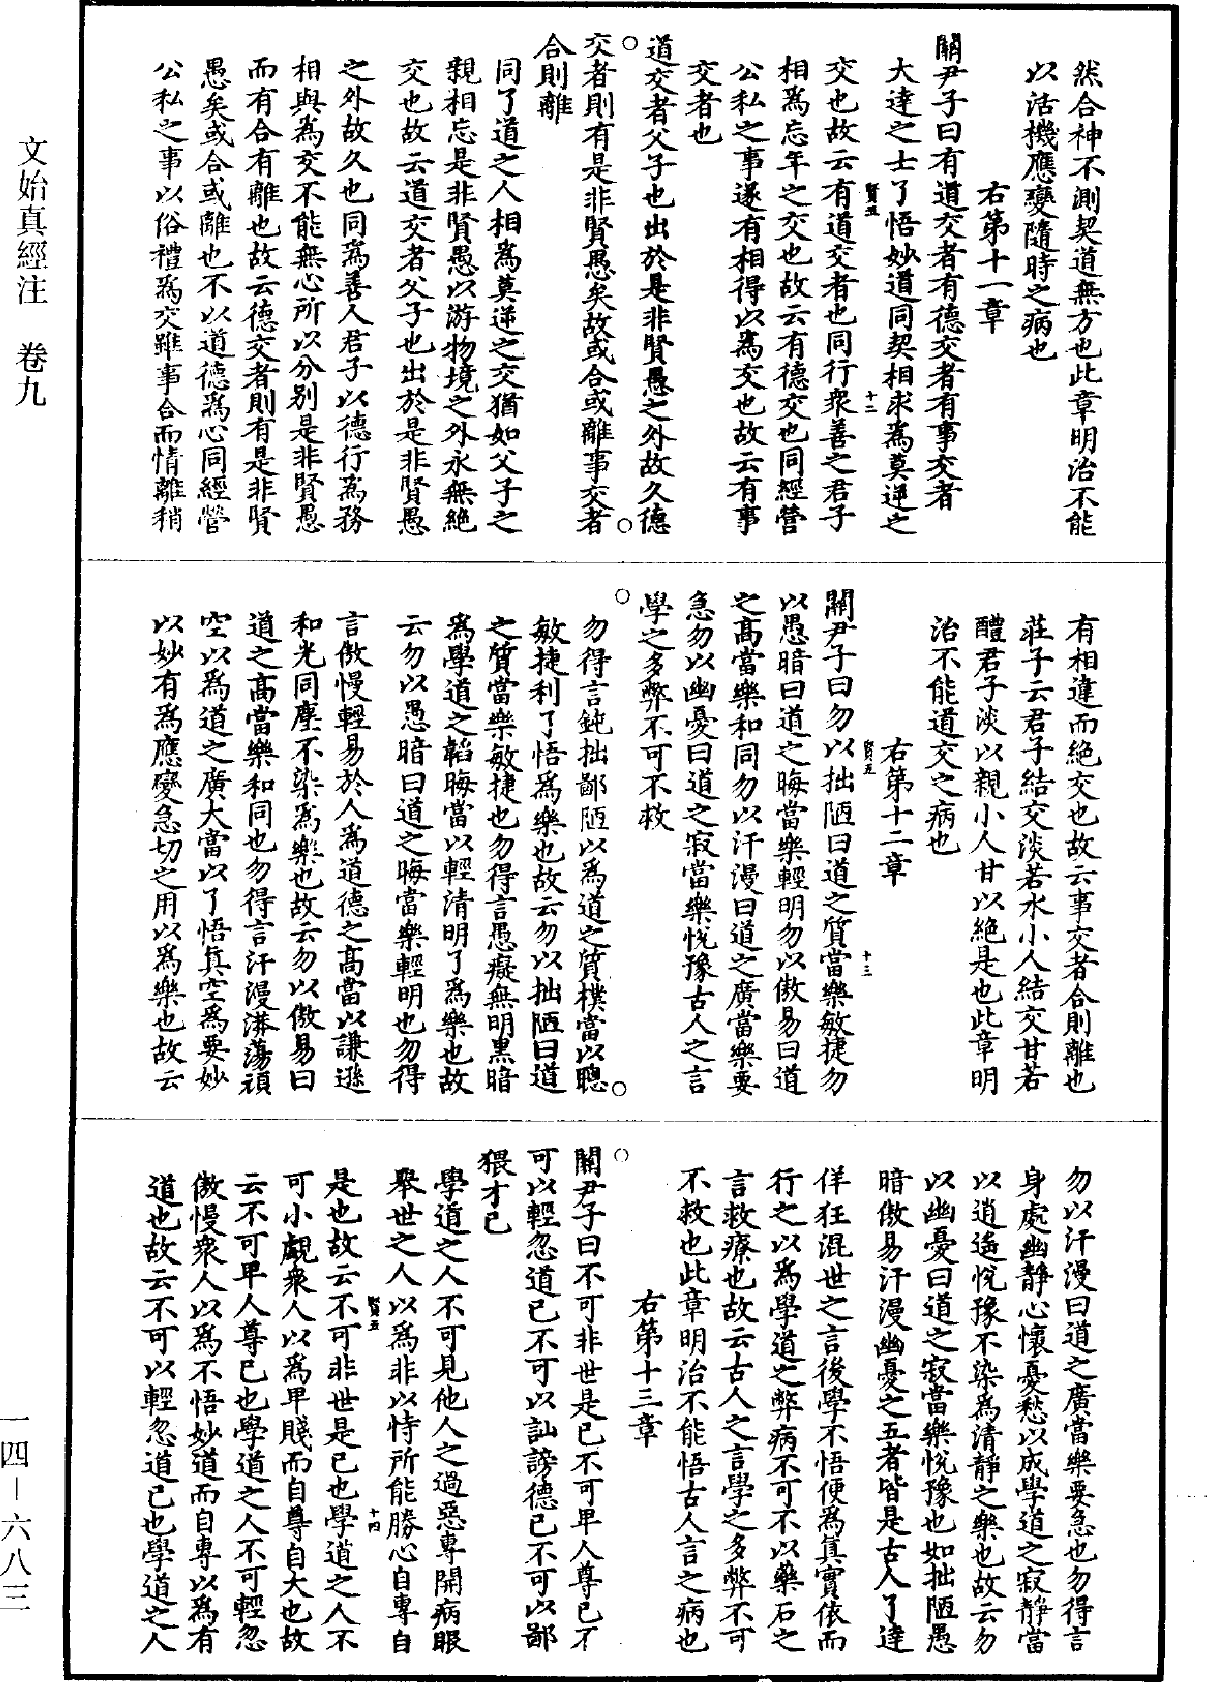 然合神不測契道無方也此章明治不能
以活機應變隨時之病也
右第十一章
關尹子曰有道交者有德交者有事交者
大達之士了悟妙道同契相求為莫逆之
賢五
十二
交也故云有道交者也同行衆善之君子
相為忘年之交也故云有德交也同經營
公私之事遂有相得以為交也故云有事
交者也
道交者父子也出於是非賢愚之外故久德
交者則有是非賢愚矣故或合或離事交者
合則離
同了道之人相為莫逆之交猶如父子之
親相忘是非賢愚以游物境之外永無絶
交也故云道交者父子也出於是非賢愚
之外故久也同為善人君子以德行為務
相與為交不能無心所以分别是非賢愚
而有合有離也故云德交者則有是非賢
愚矣或合或離也不以道德為心同經營
公私之事以俗禮為交雖事合而情離稍
有相違而絶交也故云事交者合則離也
莊子云君子結交淡若水小人結交甘若
醴君子淡以親小人甘以絶是也此章明
治不能道交之病也
右第十二章
關尹子曰勿以拙陋曰道之質當樂敏捷勿
賢五
十三
以愚暗曰道之晦當樂輕明勿以傲易曰道
之高當樂和同勿以汗漫曰道之廣當樂要
急勿以幽憂曰道之寂當樂悅豫古人之言
學之多弊不可不救
勿得言鈍拙鄙陋以為道之質樸當以聰
敏捷利了悟為樂也故云勿以拙陋曰道
之質當樂敏捷也勿得言愚癡無明黑暗
為學道之韜晦當以輕清明了為樂也故
云勿以愚暗曰道之晦當樂輕明也勿得
言傲慢輕易於人為道德之高當以謙遜
和光同塵不染為樂也故云勿以傲易曰
道之高當樂和同也勿得言汗漫漭蕩頑
空以為道之廣大當以了悟真空為要妙
以妙有為應變急切之用以為樂也故云
勿以汗漫曰道之廣當樂要急也勿得言
身處幽靜心懷憂愁以成學道之寂靜當
以逍遙悅豫不染為清靜之樂也故云勿
以幽憂曰道之寂當樂悅豫也如拙陋愚
暗傲易汗漫幽憂之五者皆是古人了達
佯狂混世之言後學不悟便為真實依而
行之以為學道之弊病不可不以藥石之
言救療也故云古人之言學之多弊不可
不救也此章明治不能悟古人言之病也
右第十三章
關尹子曰不可非世是已不可卑人尊已不
可以輕忽道已不可以訕謗德已不可以鄙
猥才已
學道之人不可見他人之過惡專開病眼
舉世之人以為非以恃所能勝心自專自
賢五
十四
是也故云不可非世是已也學道之人不
可小覷衆人以為卑賤而自尊自大也故
云不可卑人尊已也學道之人不可輕忽
傲慢衆人以為不悟妙道而自專以為有
道也故云不可以輕忽道已也學道之人
文始真經注　卷九
一四—六八三